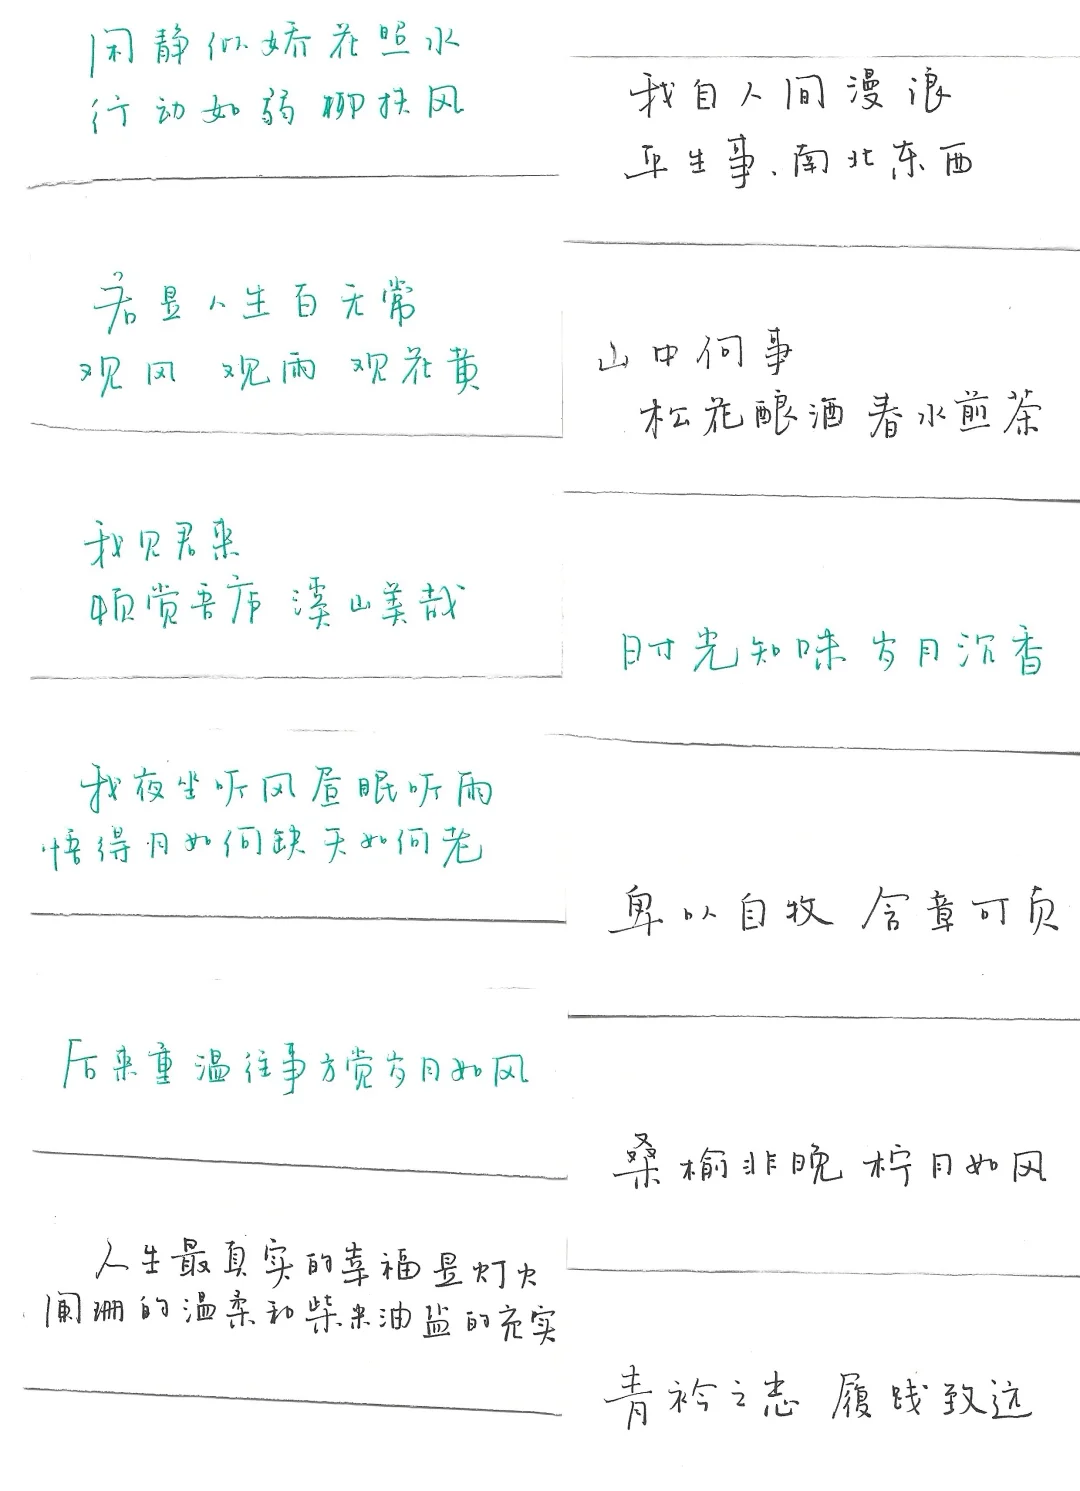 闲静似娇花照水
行动如弱柳扶风
若是人生百无常
观风 观雨 观花黄
我见君来
顿觉吾庐 溪山美哉
我夜坐听风昼眠听雨
悟得月如何缺天如何老
后来重温往事方觉岁月如风
人生最真实的幸福是灯火
阑珊的温柔和柴米油盐的充实
我自人间漫浪
平生事、南北东西
山中何事
松花酿酒 春水煎茶
时光知味 岁月沉香
卑以自牧 含章可贞
桑榆非晚 柠月如风
青衿之志 履践致远